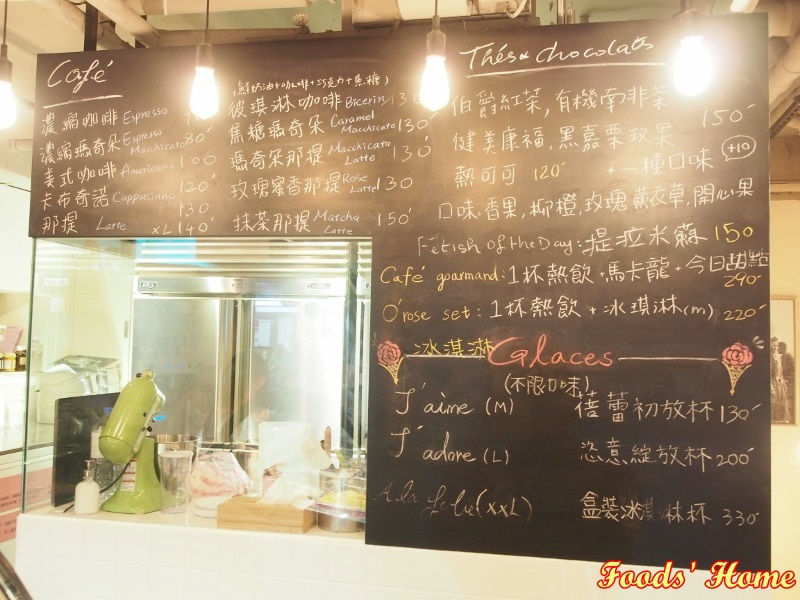 Café
濃縮咖啡 Espresso
濃縮瑪奇朵 Espresso Macchicato 80
美式咖啡 Americano 100
卡布奇諾 Cappuccino 120
130
那提 Latte XL 140
(鮮奶油+咖啡+巧克力+焦糖)
彼琪淋咖啡 Bicerin 130
焦糖瑪奇朵 Caramel Macchicato 130
瑪奇朵那提 Macchicato Latte 130
玫瑰蜜香那提 Rose Latte 130
抹茶那提 Matcha Latte 150
Thés & chocolats
伯爵紅茶,有機南非茶
健美康福,黑嘉栗玫果 150
熱可可 120 + 一種口味 +10
口味:香果,柳橙,玫瑰,薰衣草,開心果
Fetish of the Day: 提拉米蘇 150
Café gourmand: 1杯熱飲+馬卡龍+今日甜點 290
O'rose set: 1杯熱飲+冰琪淋(m) 220
冰淇淋 Glaces
(不限口味)
J'aime (M) 蓓蕾初放杯 130
J'adore (L) 恣意綻放杯 200
A la folie (XXL) 盒裝冰淇淋杯 330
Foods' Home